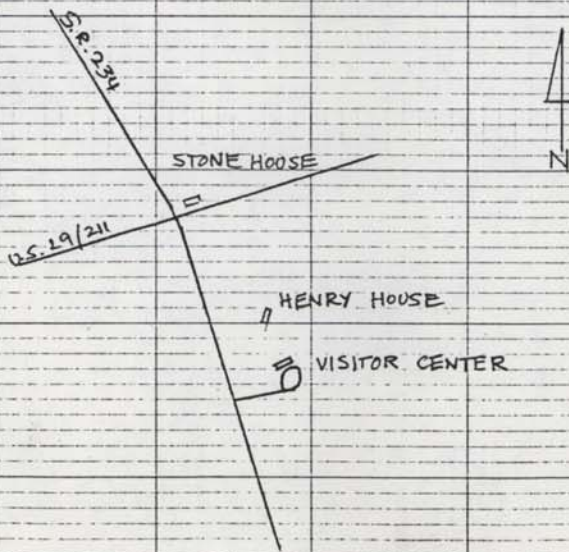 S.R. 234
STONE HOOSE
N
U.S. 29/211
HENRY HOUSE
VISITOR CENTER